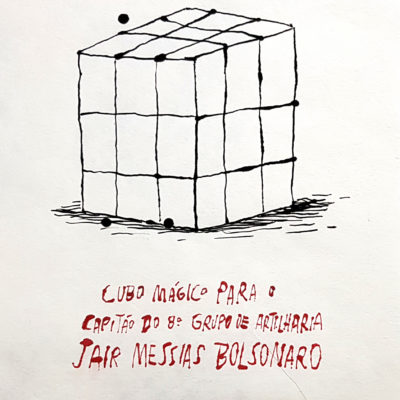 CUBO MÁGICO PARA O
CAPITÃO DO 8º GRUPO DE ARTILHARIA
JAIR MESSIAS BOLSONARO